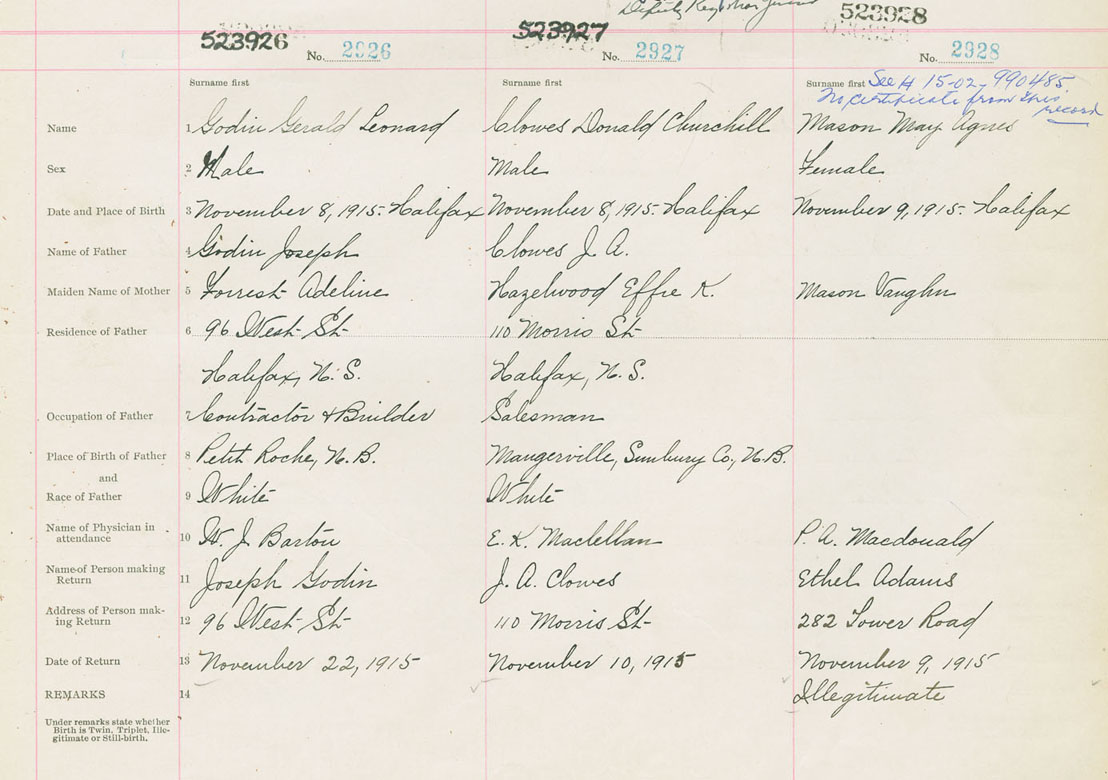 Deputy Registrar
523926
523927
523928
No. 2926
No. 2927
No. 2928
Surname first
Surname first
Surname first See # 15-02-990485.
No certificate from this
record
Name 1 Godin Gerald Leonard Clowes Donald Churchill Mason May Agnes
Sex 2 Male Male Female
Date and Place of Birth 3 November 8, 1915-Halifax November 8, 1915-Halifax November 9, 1915-Halifax
Name of Father 4 Godin Joseph Clowes J. A.
Maiden Name of Mother 5 Forrest Adeline Hazelwood Effie K. Mason Vaughn
Residence of Father 6 96 West St 110 Morris St
Halifax, N.S. Halifax, N.S.
Occupation of Father 7 Contractor & Builder Salesman
Place of Birth of Father 8 Petit Roche, N.B. Maugerville, Sunbury Co., N.B.
and
Race of Father 9 White White
Name of Physician in
attendance 10 W. J. Barton E. K. Maclellan P. A. Macdonald
Name of Person making
Return 11 Joseph Godin J. A. Clowes Ethel Adams
Address of Person mak-
ing Return 12 96 West St 110 Morris St 282 Tower Road
Date of Return 13 November 22, 1915 November 10, 1915 November 9, 1915
REMARKS 14 Illegitimate
Under remarks state whether
Birth is Twin, Triplet, Ille-
gitimate or Still-birth.